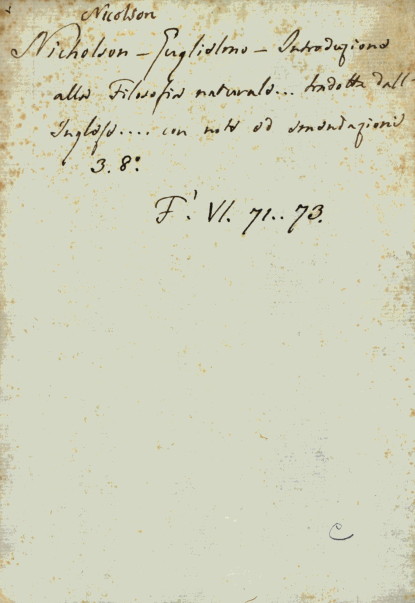 Nicolson
Nicholson - Guglielmo - Introduzione
alla Filosofia naturale... tradotta dall'
Inglese.... con note ed emendazioni
3. 8º.
F'. VI. 71.. 73.
C